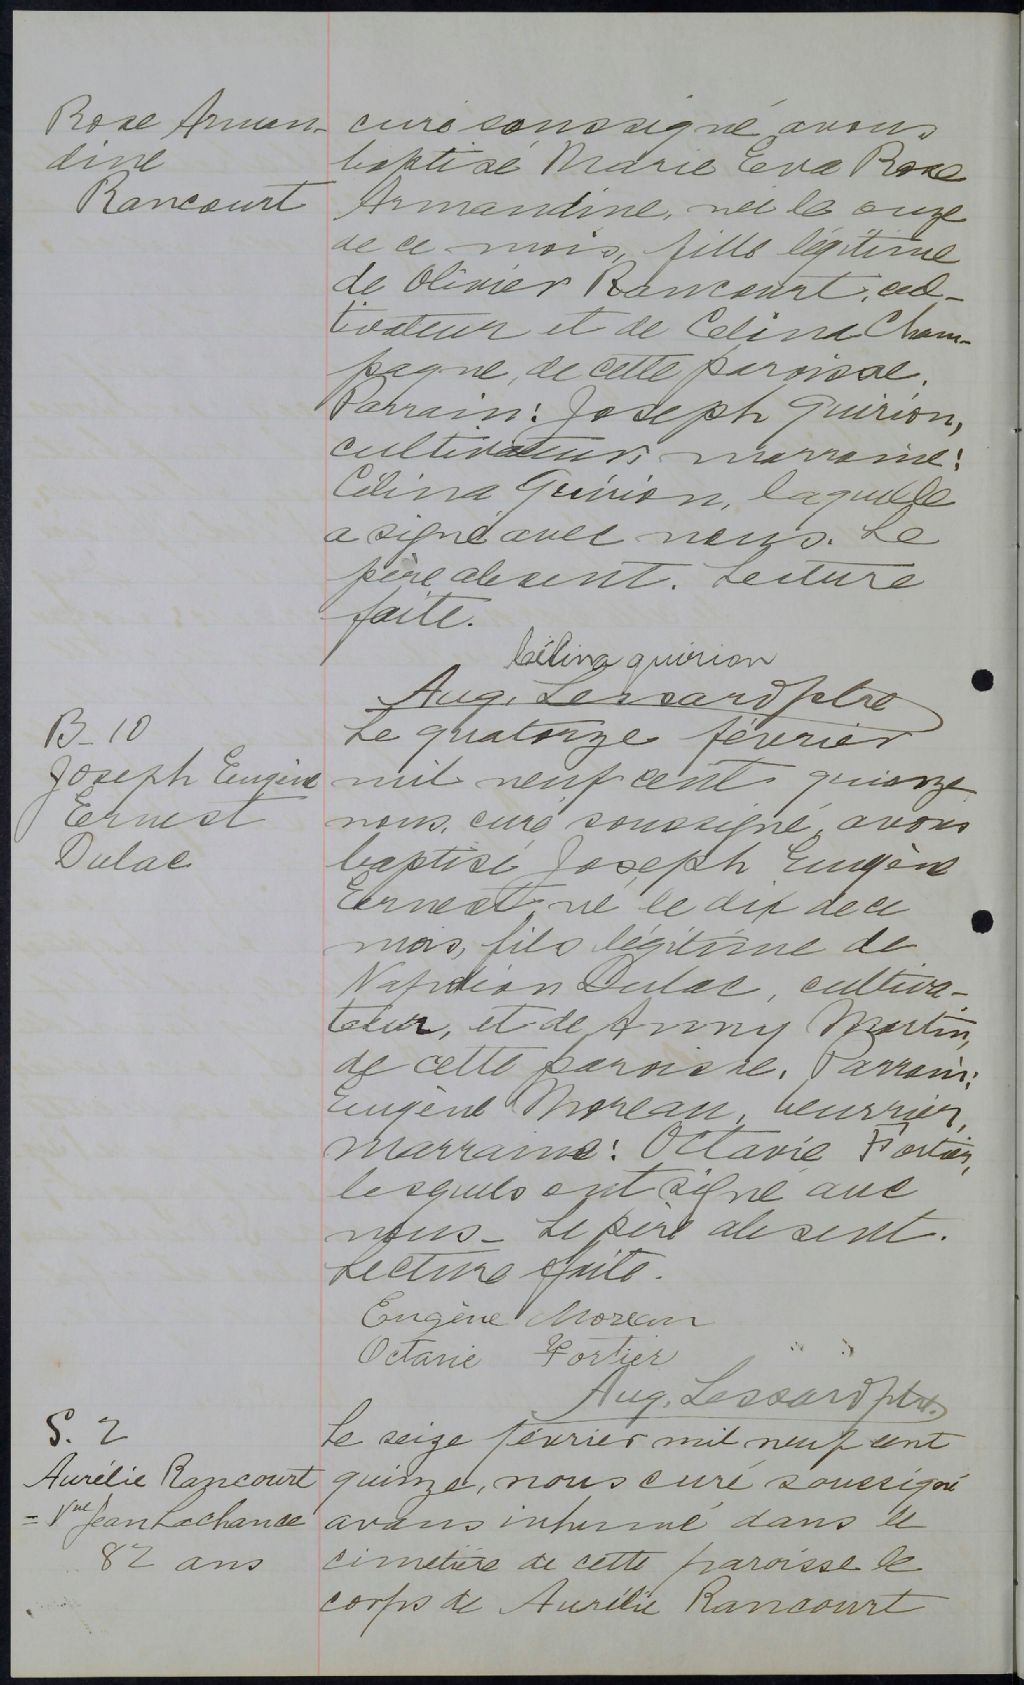 Rose Arman-
dine
Rancourt
curé soussigné avons
baptisé Marie Eva Rose
Armandine, née le onze
de ce mois, fille légitime
de Olivier Rancourt, cul-
tivateur et de Celina Cham-
pagne, de cette paroisse.
Parrain: Joseph Quirion,
cultivateur, marraine:
Célina Quirion, laquelle
a signé avec nous. Le
père absent. Lecture
faite.
Célina quirion
Aug. Lessard ptre
B-10
Joseph Eugène
Ernest
Dulac
Le quatorze février
mil neuf cent quinze
nous, curé soussigné, avons
baptisé Joseph Eugène
Ernest né le dix de ce
mois, fils légitime de
Napoléon Dulac, cultiva-
teur, et de Anny Martin,
de cette paroisse. Parrain:
Eugène Moreau, beurrier,
marraine: Octavie Fortier,
lesquels ont signé avec
nous - Le père absent.
Lecture faite.
Eugène Moreau
Octavie Fortier
Aug. Lessard ptre.
S. 2
Aurélie Rancourt
= Vve Jean Lachance
82 ans
Le seize février mil neuf cent
quinze, nous curé soussigné
avons inhumé dans le
cimetière de cette paroisse le
corps de Aurélie Rancourt